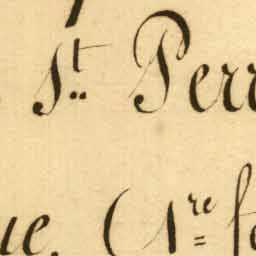 St. Perr
ue. (1re fe